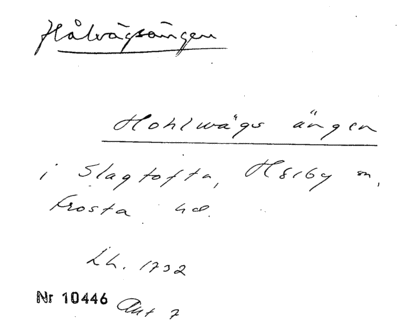 Hålvägsängen
Hohlwägs ängen
i Slagtofta, Hörby sn,
Frosta hd.
Lh. 1732
Nr 10446 Akt 7